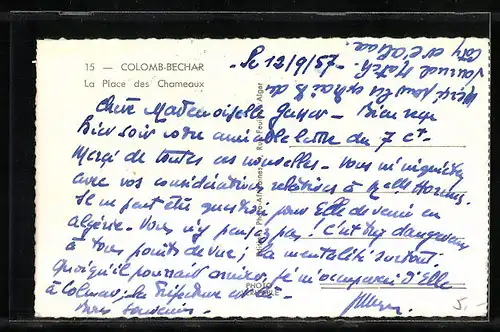 15 — COLOMB-BECHAR
La Place des Chameaux
Le 12/9/57 -
Chère Mademoiselle - Bien reçu
Hier soir votre aimable lettre du 7 ct -
Merci de toutes ces nouvelles - Vous m'inquiétez
avec vos considérations relatives à Melle
Il ne peut être question pour Elle de venir en
Algérie - Vous n'y pensez pas! C'est trop dangereux
à tous points de vue; la mentalité surtout.
Quoiqu'il pourrait arriver, je m'occuperai d'Elle
à Colmar; la Préfecture
Bons Souvenirs -
Merci pour les extraits du
Journal Match.
PHOTO
VÉRITABLE
5,-